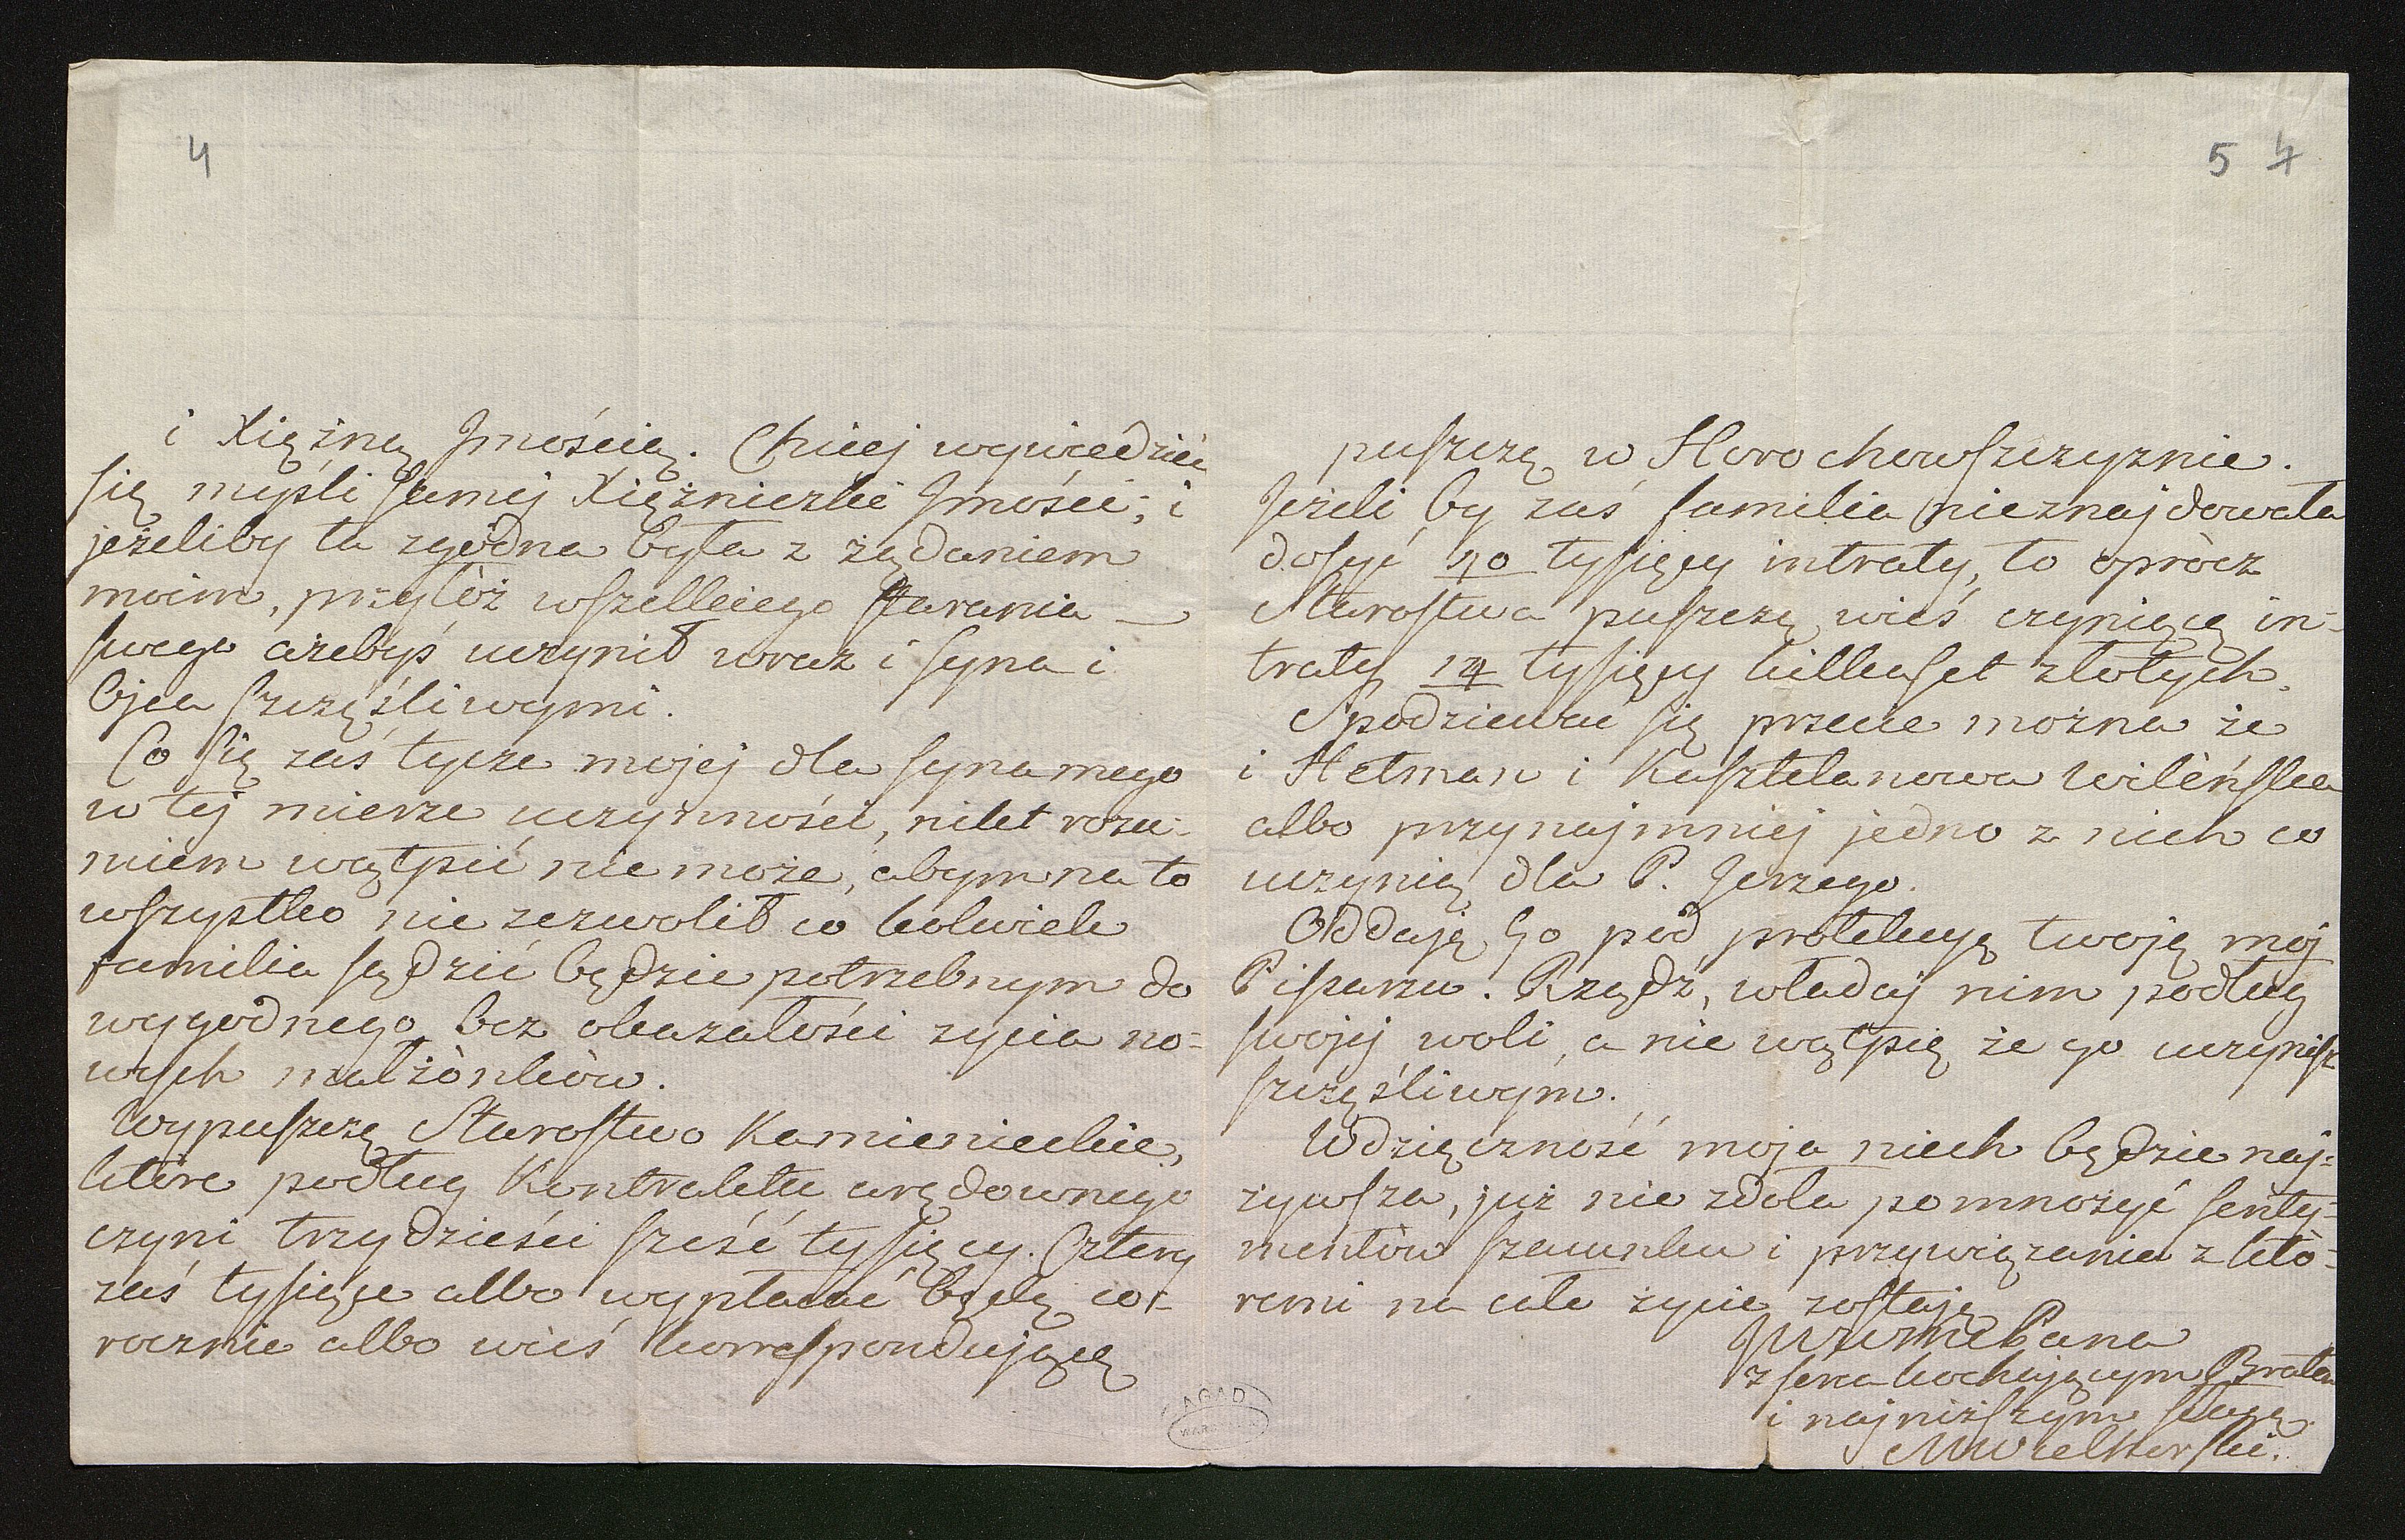 4
i Xiężną Jmością. Chciej wywiedzieć
się myśli samej Xiężniczki Jmości; i
jeżeliby ta zgódna była z żądaniem
moim, przyłóż wszelkiego starania
swego ażebyś uczynił wraz i syna i
Ojca szczęśliwymi.
Co się zaś tycze mojej dla syna mego
w tej mierze uczynności, nikt rozu-
miem wątpić nie może, abym na to
wszystko nie zezwolił co kolwiek
familia sądzić będzie potrzebnym do
wygódnego bez okazałości zycia no-
wych małżònków.
Wypuszczę Starostwo Kamienieckie,
które podług Kontraktu arędownego
czyni trzydzieści sześć tysięcy. Cztery
zaś tysiące albo wypłacać będę co-
rocznie albo wieś korrespondującą
5 4
puszczę w Horochowszczyznie.
Jeżeli by zaś familia nieznajdowała
dosyć 40 tysięcy intraty, to opròcz
Starostwa puszczę wieś czyniącą in-
traty 14 tysięcy kilkaset złotych.
Spodziewać się przecie można że
i Hetman i Kasztelanowa Wileńska
albo przynajmniej jedno z nich co
uczynią dla P. Jerzego.
Oddaję Go pod protekcyą twoję mój
Pisarzu. Rządź, władaj nim podług
swojej woli, a nie wątpię że go uczynisz
szczęśliwym.
Wdzięczność moja niech będzie naj-
zywsza, już nie zdoła pomnożyć senty-
mentów szacunku i przywiązania z któ-
remi na całe życie zostaję
JWWMćPana
z serca kochającym Bratem
i najniższym sługą
MWielhorski.
AGAD